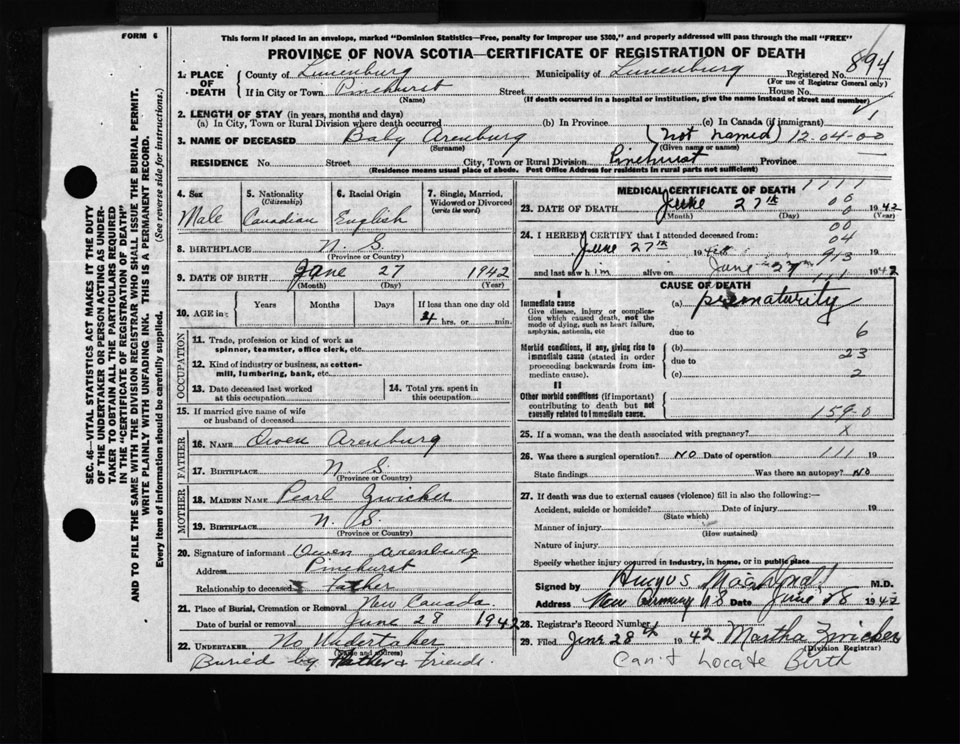 FORM 6
This form if placed in an envelope, marked "Dominion Statistics—Free, penalty for improper use $300," and properly addressed will pass through the mail "FREE"
PROVINCE OF NOVA SCOTIA—CERTIFICATE OF REGISTRATION OF DEATH
894
1. PLACE OF DEATH County of Lunenburg Municipality of Lunenburg Registered No.
(For use of Registrar General only)
If in City or Town Pinehurst Street House No.
(Name) (If death occurred in a hospital or institution, give the name instead of street and number)
2. LENGTH OF STAY (in years, months and days)
(a) In City, Town or Rural Division where death occurred (b) In Province (c) In Canada (if immigrant)
3. NAME OF DECEASED Baby Arenburg (Not named) 12-04-00
(Surname) (Given name or names)
RESIDENCE No. Street City, Town or Rural Division Pinehurst Province
(Residence means usual place of abode. Post Office Address for residents in rural parts not sufficient)
SEC. 46—VITAL STATISTICS ACT MAKES IT THE DUTY
OF THE UNDERTAKER OR PERSON ACTING AS UNDER-
TAKER TO OBTAIN ALL THE PARTICULARS REQUIRED
IN THE "CERTIFICATE OF REGISTRATION OF DEATH"
AND TO FILE THE SAME WITH THE DIVISION REGISTRAR WHO SHALL ISSUE THE BURIAL PERMIT.
WRITE PLAINLY WITH UNFADING INK. THIS IS A PERMANENT RECORD.
Every item of Information should be carefully supplied. (See reverse side for instructions.)
4. Sex
Male
5. Nationality
(Citizenship)
Canadian
6. Racial Origin
English
7. Single, Married, Widowed or Divorced
(write the word)
8. BIRTHPLACE N. S.
(Province or Country)
9. DATE OF BIRTH June 27 1942
(Month) (Day) (Year)
10. AGE in Years Months Days If less than one day old
4 hrs. or min.
OCCUPATION
11. Trade, profession or kind of work as
spinner, teamster, office clerk, etc.
12. Kind of industry or business, as cotton-
mill, lumbering, bank, etc.
13. Date deceased last worked
at this occupation
14. Total yrs. spent in
this occupation
15. If married give name of wife
or husband of deceased
FATHER
16. NAME Owen Arenburg
17. BIRTHPLACE N. S.
(Province or Country)
MOTHER
18. MAIDEN NAME Pearl Zwicker
19. BIRTHPLACE N. S.
(Province or Country)
20. Signature of informant Owen Arenburg
Address Pinehurst
Relationship to deceased Father
21. Place of Burial, Cremation or Removal New Canada.
Date of burial or removal June 28 1942
22. UNDERTAKER No Undertaker
(Name and address)
Buried by Father & Friends.
MEDICAL CERTIFICATE OF DEATH 1111
23. DATE OF DEATH June 27th 1942
(Month) (Day) (Year)
00
0
24. I HEREBY CERTIFY that I attended deceased from:
00
04
June 27th 19
913
and last saw him alive on June 27 1942
111
CAUSE OF DEATH
I
Immediate cause
Give disease, injury or complica-
tion which caused death, not the
mode of dying, such as heart failure,
asphyxia, asthenia, etc
(a) prematurity
due to 6
Morbid conditions, if any, giving rise to
immediate cause (stated in order
proceeding backwards from im-
mediate cause).
(b) 23
due to
(c) 2
II
Other morbid conditions (if important)
contributing to death but not
causally related to immediate cause.
159.0
25. If a woman, was the death associated with pregnancy? X
26. Was there a surgical operation? NO Date of operation 111 19
State findings Was there an autopsy? NO
27. If death was due to external causes (violence) fill in also the following:—
Accident, suicide or homicide? Date of injury 19
(State which)
Manner of injury
(How sustained)
Nature of injury
Specify whether injury occurred in industry, in home, or in public place
Signed by Angus M.D.
Address New Germany NS Date June 28 1942
28. Registrar's Record Number
29. Filed June 28th 1942 Martha Zwicker
(Division Registrar)
Can't Locate Birth